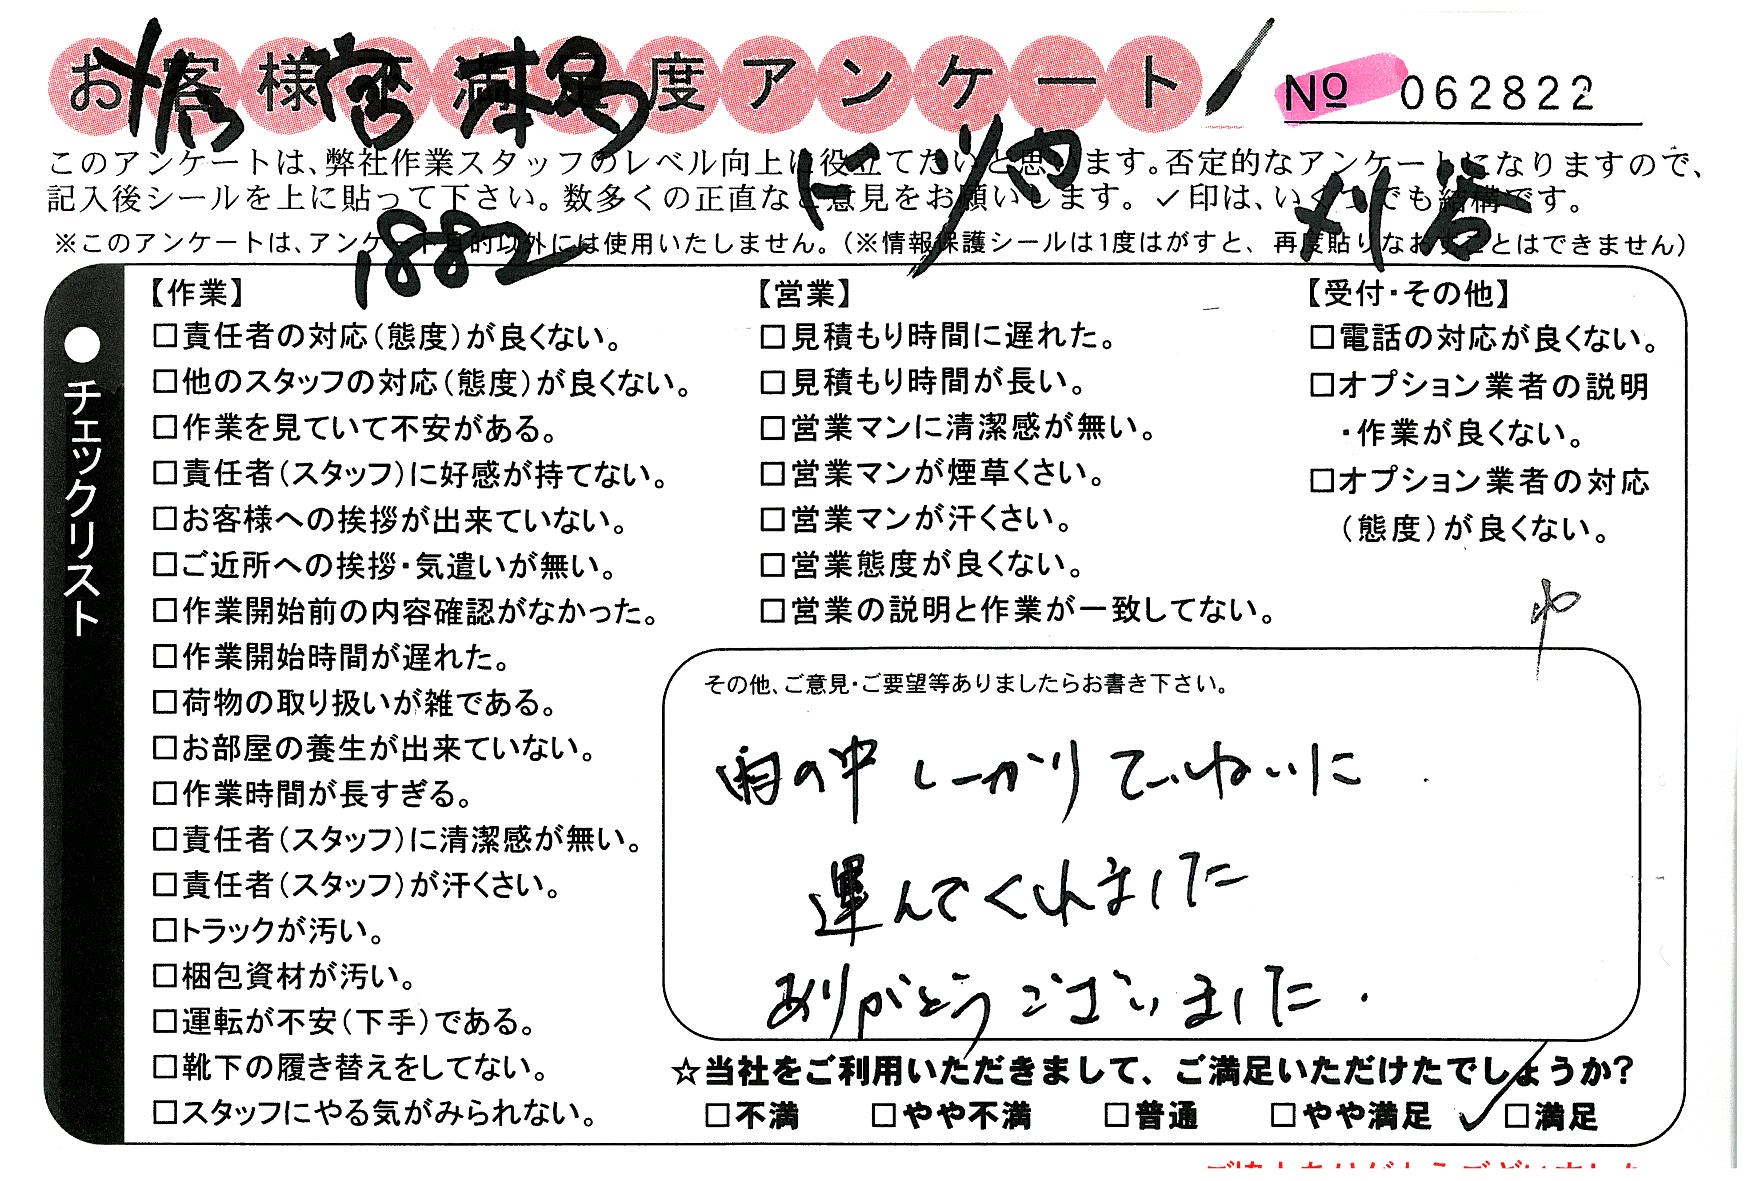 お客様不満足度アンケート
№ 062822
このアンケートは、弊社作業スタッフのレベル向上に役立てたいと思います。否定的なアンケートになりますので、
記入後シールを上に貼って下さい。数多くの正直なご意見をお願いします。✓印は、いくつでも結構です。
※このアンケートは、アンケート目的以外には使用いたしません。(※情報保護シールは1度はがすと、再度貼りなおすことはできません)
1882
刈谷
●チェックリスト
【作業】
□責任者の対応(態度)が良くない。
□他のスタッフの対応(態度)が良くない。
□作業を見ていて不安がある。
□責任者(スタッフ)に好感が持てない。
□お客様への挨拶が出来ていない。
□ご近所への挨拶・気遣いが無い。
□作業開始前の内容確認がなかった。
□作業開始時間が遅れた。
□荷物の取り扱いが雑である。
□お部屋の養生が出来ていない。
□作業時間が長すぎる。
□責任者(スタッフ)に清潔感が無い。
□責任者(スタッフ)が汗くさい。
□トラックが汚い。
□梱包資材が汚い。
□運転が不安(下手)である。
□靴下の履き替えをしてない。
□スタッフにやる気がみられない。
【営業】
□見積もり時間に遅れた。
□見積もり時間が長い。
□営業マンに清潔感が無い。
□営業マンが煙草くさい。
□営業マンが汗くさい。
□営業態度が良くない。
□営業の説明と作業が一致してない。
【受付・その他】
□電話の対応が良くない。
□オプション業者の説明
・作業が良くない。
□オプション業者の対応
(態度)が良くない。
その他、ご意見・ご要望等ありましたらお書き下さい。
雨の中 しっかり ていねいに
運んでくれました
ありがとうございました.
☆当社をご利用いただきまして、ご満足いただけたでしょうか?
□不満 □やや不満 □普通 □やや満足 ✓□満足